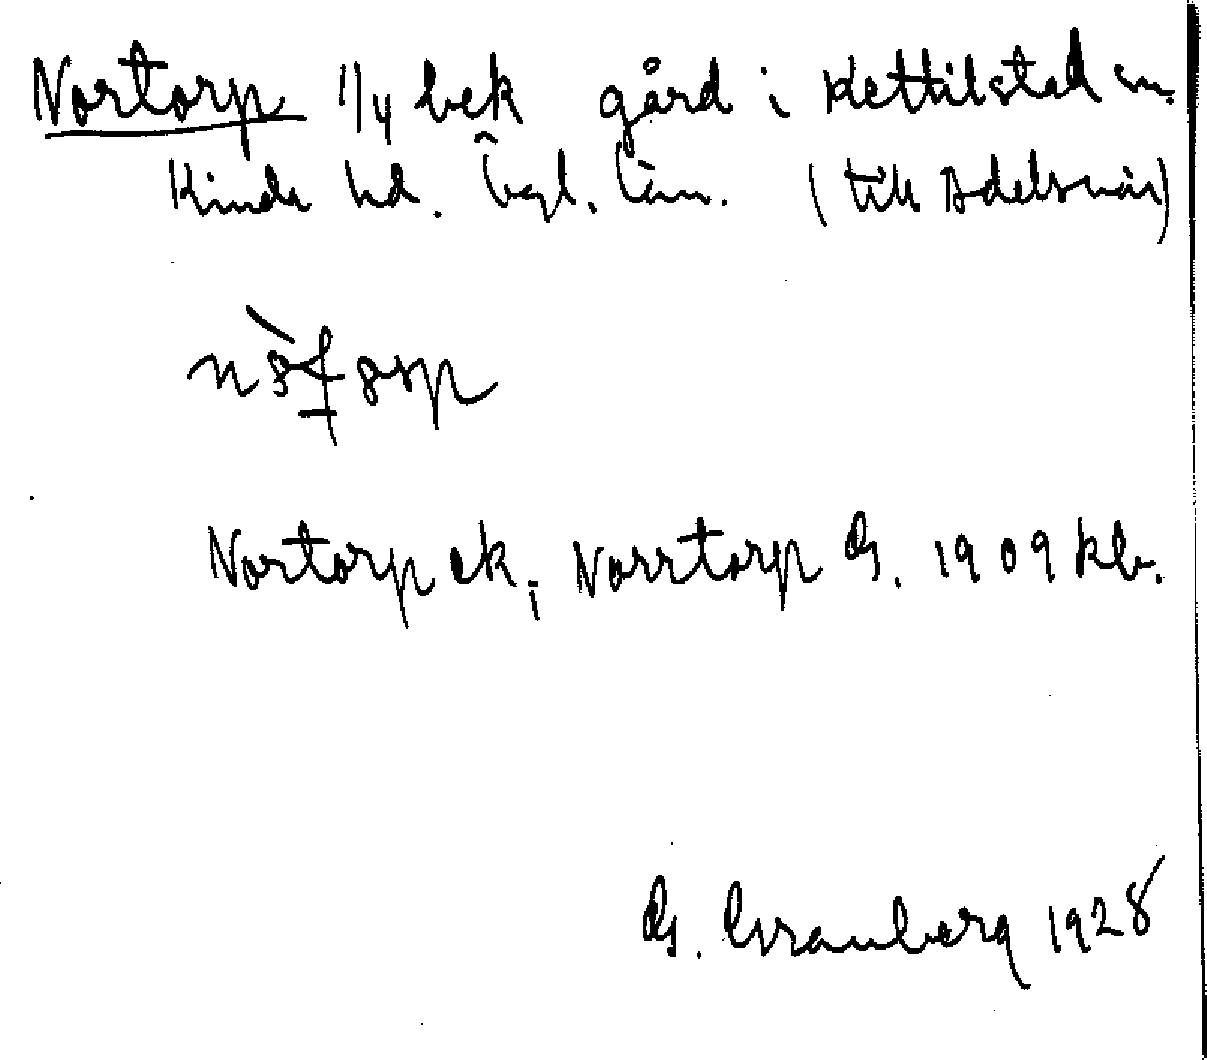 Nortorp 1/4 bek gård i Kettilstad sn.
Kinda hd. Ögl. län. (till Adelsnäs)
Nortorp ek; Norrtorp G. 1909 kb.
G. Granberg 1928